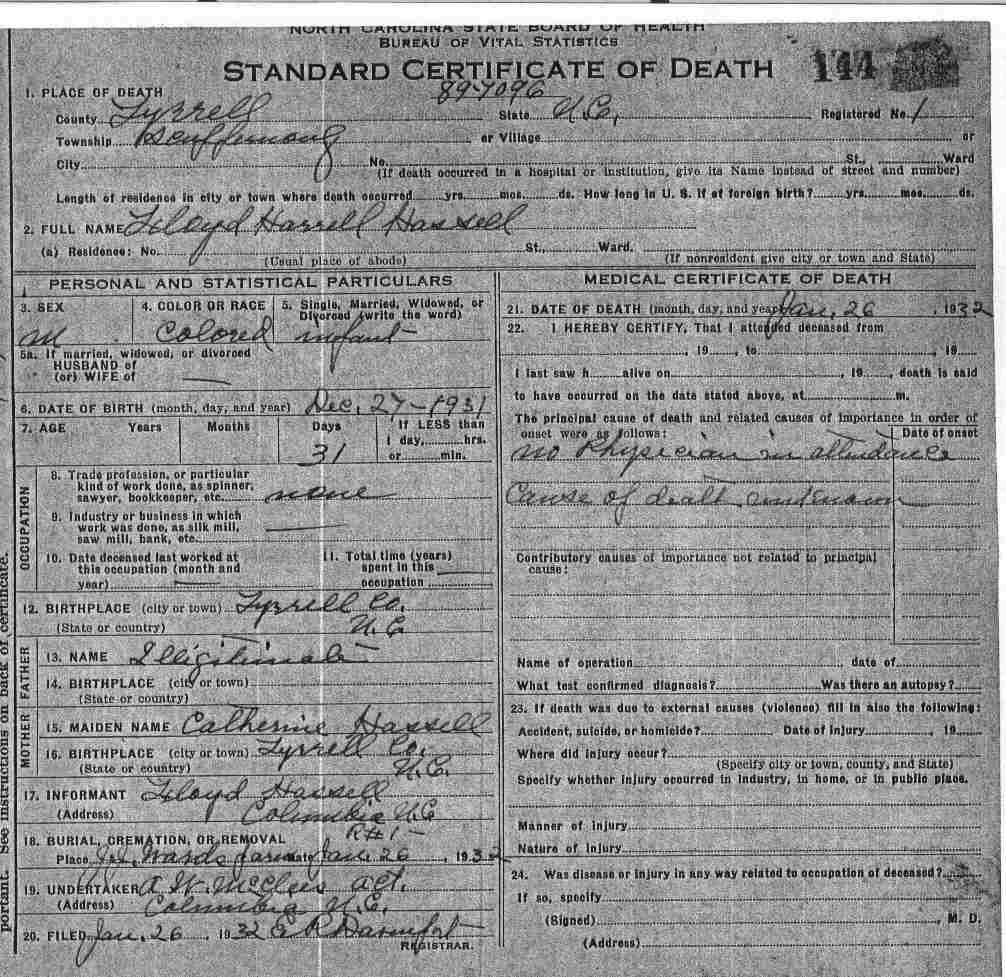 NORTH CAROLINA STATE BOARD OF HEALTH
BUREAU OF VITAL STATISTICS
STANDARD CERTIFICATE OF DEATH
144
89-7096
1. PLACE OF DEATH
County Tyrrell State N.C. Registered No. 1
Township Scuppernong or Village or
City No. St., Ward
(If death occurred in a hospital or institution, give its Name instead of street and number)
Length of residence in city or town where death occurred yrs. mos. ds. How long in U. S. if of foreign birth? yrs. mos. ds.
2. FULL NAME Floyd Harrell Hassell
(a) Residence: No. St., Ward.
(Usual place of abode) (If nonresident give city or town and State)
PERSONAL AND STATISTICAL PARTICULARS
3. SEX 4. COLOR OR RACE 5. Single, Married, Widowed, or
Divorced (write the word)
M Colored infant
5a. If married, widowed, or divorced
HUSBAND of
(or) WIFE of
6. DATE OF BIRTH (month, day, and year) Dec. 27-1931
7. AGE Years Months Days If LESS than
1 day, hrs.
31 or min.
OCCUPATION
8. Trade profession, or particular
kind of work done, as spinner,
sawyer, bookkeeper, etc. none
9. Industry or business in which
work was done, as silk mill,
saw mill, bank, etc.
10. Date deceased last worked at
this occupation (month and
year)
11. Total time (years)
spent in this
occupation
12. BIRTHPLACE (city or town) Tyrrell Co.
(State or country) N.C.
FATHER
13. NAME Illigitimate
14. BIRTHPLACE (city or town)
(State or country)
MOTHER
15. MAIDEN NAME Catherine Hassell
16. BIRTHPLACE (city or town) Tyrrell Co.
(State or country) N.C.
17. INFORMANT Floyd Hassell
(Address) Columbia N.C
R#1-
18. BURIAL, CREMATION, OR REMOVAL
Place Wards farm Date Jan. 26, 1932
19. UNDERTAKER A. W. McClees act.
(Address) Columbia N.C.
20. FILED Jan. 26, 1932 E R Davenport
REGISTRAR.
MEDICAL CERTIFICATE OF DEATH
21. DATE OF DEATH (month, day, and year) Jan. 26, 1932
22. I HEREBY CERTIFY, That I attended deceased from
, 19 , to , 19
I last saw h alive on , 19 , death is said
to have occurred on the date stated above, at m.
The principal cause of death and related causes of importance in order of
onset were as follows: Date of onset
no Physician in attendance
Cause of death unknown
Contributory causes of importance not related to principal
cause:
Name of operation date of
What test confirmed diagnosis? Was there an autopsy?
23. If death was due to external causes (violence) fill in also the following:
Accident, suicide, or homicide? Date of injury , 19
Where did injury occur?
(Specify city or town, county, and State)
Specify whether injury occurred in industry, in home, or in public place.
Manner of injury
Nature of injury
24. Was disease or injury in any way related to occupation of deceased?
If so, specify
(Signed) , M. D.
(Address)
portant. See instructions on back of certificate.